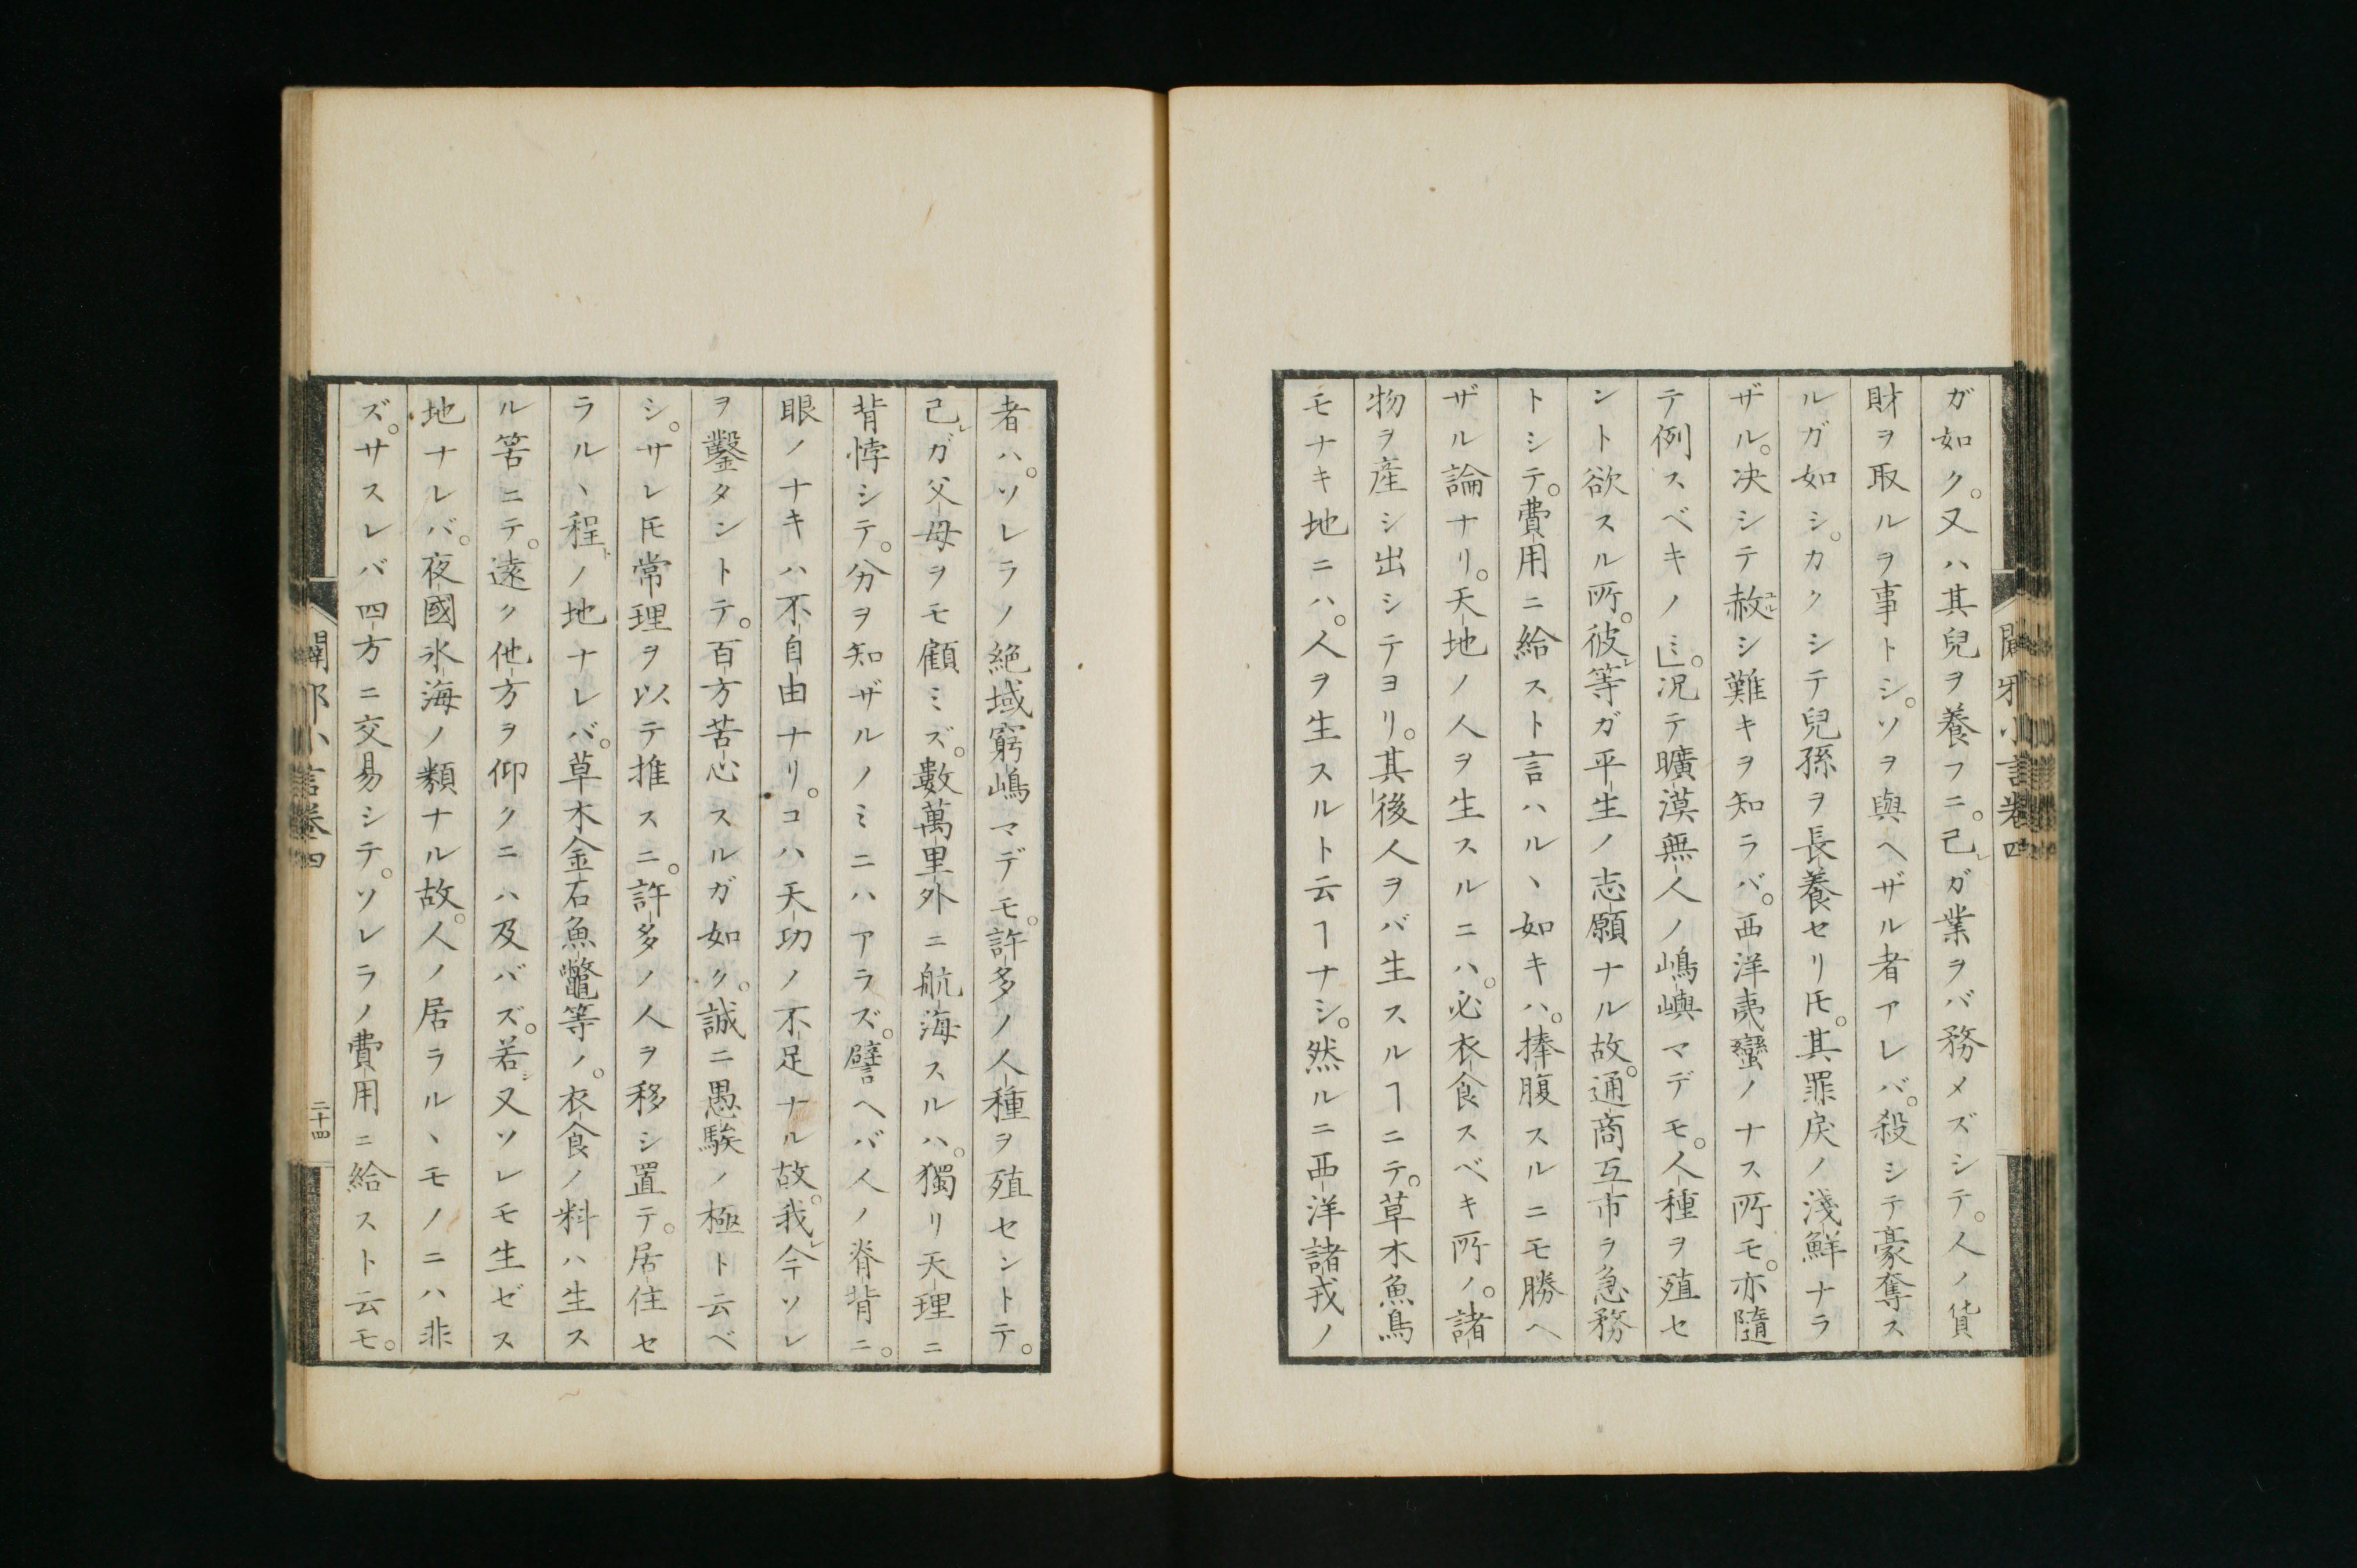 ガ如ク。又ハ其兒ヲ養フニ。己レガ業ヲバ務メズシテ。人ノ貨
財ヲ取ルヲ事トシ。ソヲ與ヘザル者アレバ。殺シテ豪奪ス
ルガ如シ。カクシテ兒孫ヲ長養セリ𪜈。其罪戻ノ淺鮮ナラ
ザル。决シテ赦ユルシ難キヲ知ラバ。西洋夷蠻ノナス所モ。亦隨
テ例スベキノミ」。况テ曠漠無人ノ嶋嶼マデモ。人種ヲ殖セ
ント欲スル所。彼レ等ガ平生ノ志願ナル故。通商互市ヲ急務
トシテ。費用ニ給スト言ハルヽ如キハ。捧腹スルニモ勝ヘ
ザル論ナリ。天地ノ人ヲ生スルニハ。必衣食スベキ所ノ。諸
物ヲ産シ出シテヨリ。其後人ヲバ生スルヿニテ。草木魚鳥
モナキ地ニハ。人ヲ生スルト云ヿナシ。然ルニ西洋諸戎ノ
闢邪小言卷四
者ハ。ソレラノ絶域窮嶋マデモ。許多ノ人種ヲ殖セントテ。
己レガ父母ヲモ顧ミズ。數萬里外ニ航海スルハ。獨リ天理ニ
背悖シテ。分ヲ知ザルノミニハアラズ。譬ヘバ人ノ脊背ニ。
眼ノナキハ不自由ナリ。コハ天功ノ不足ナル故。我レ今ソレ
ヲ鑿タントテ。百方苦心スルガ如ク。誠ニ愚騃ノ極ト云ベ
シ。サレ𪜈常理ヲ以テ推スニ。許多ノ人ヲ移シ置テ。居住セ
ラルヽ程トノ地ナレバ。草木金石魚鼈等ノ。衣食ノ料ハ生ス
ル筈ニテ。遠ク他方ヲ仰クニハ及バズ。若シ又ソレモ生ゼス
地ナレバ。夜國氷海ノ類ナル故。人ノ居ラルヽモノニハ非
ズ。サスレバ四方ニ交易シテ。ソレラノ費用ニ給スト云モ。
闢邪小言卷四
二十四